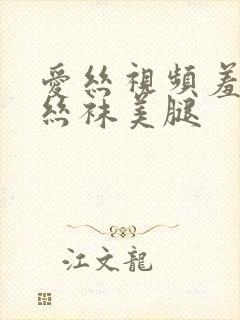 愛絲視頻羞
絲袜美腿
江文龍